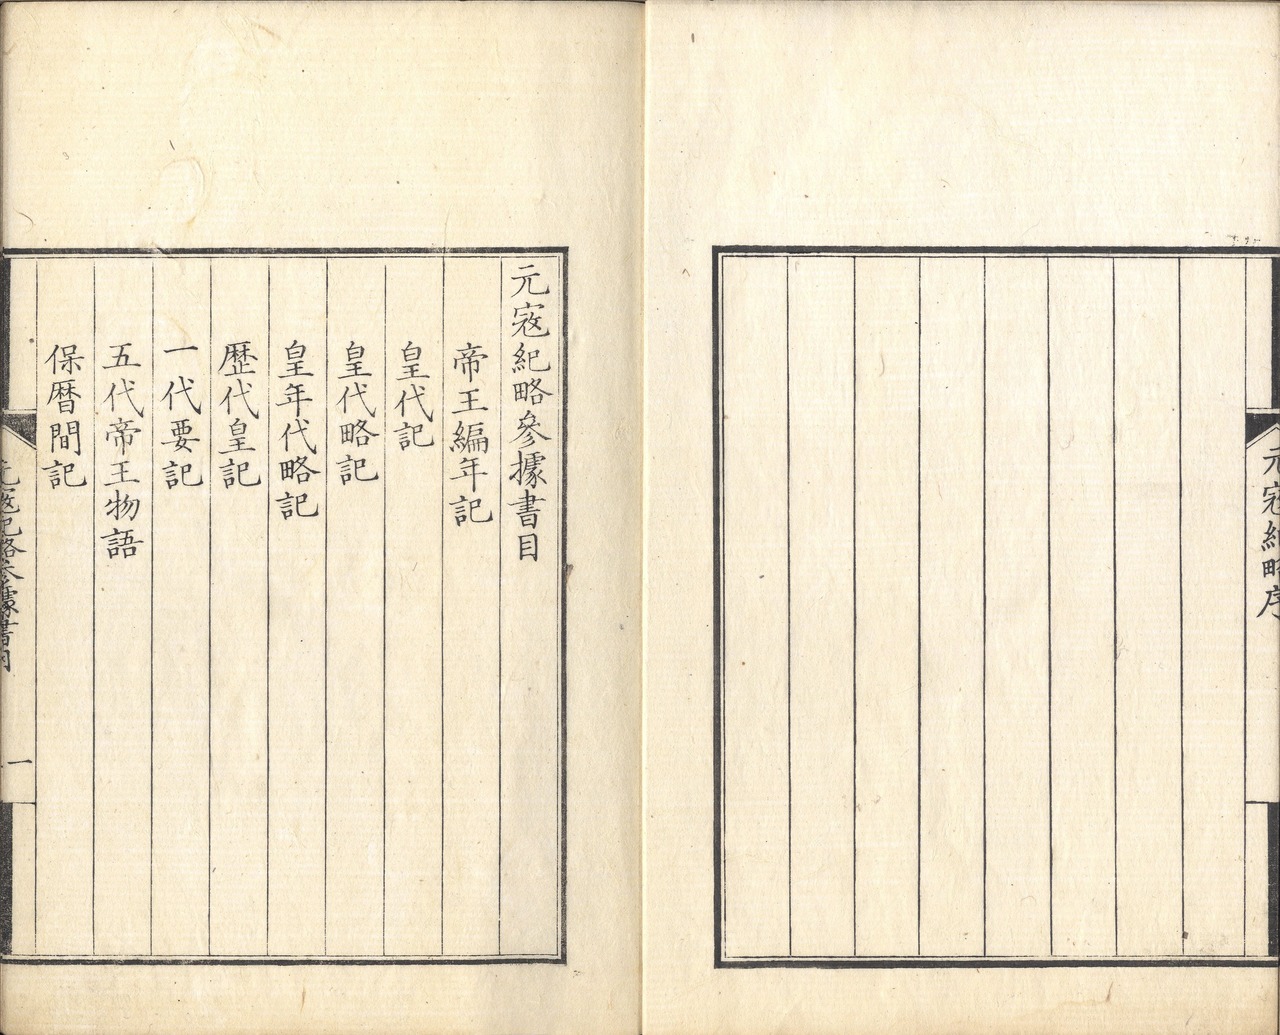 元寇紀略序
元寇紀略參據書目
帝王編年記
皇代記
皇代略記
皇年代略記
歷代皇記
一代要記
五代帝王物語
保曆間記
元寇紀略參據書目
一